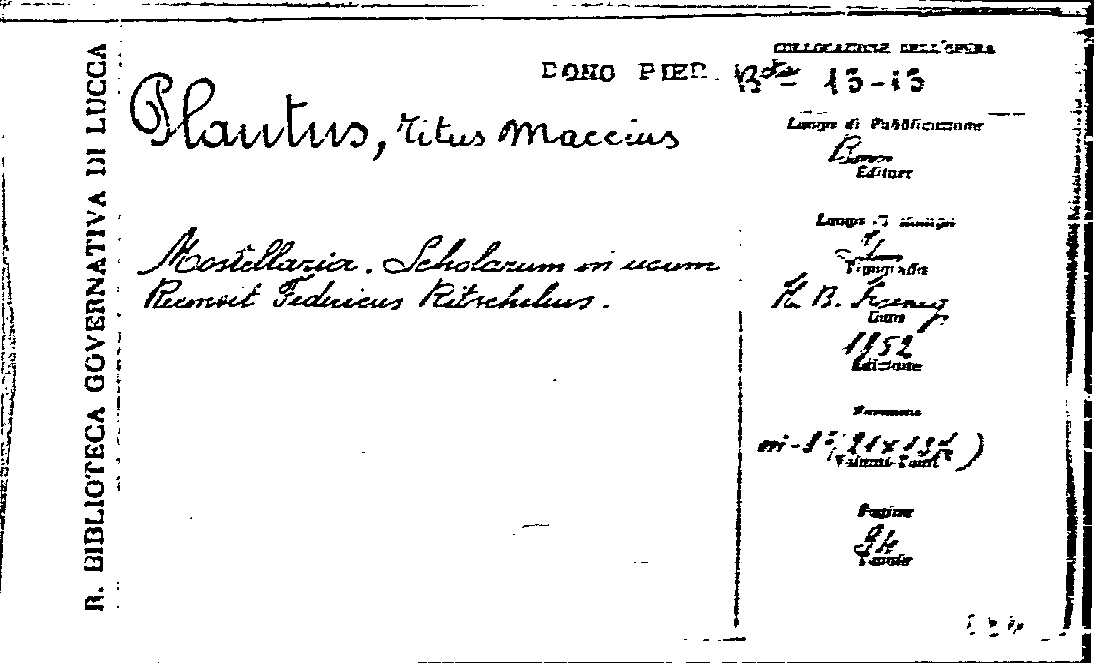 R. BIBLIOTECA GOVERNATIVA DI LUCCA
COLLOCAZIONE DELL'OPERA
DONO PIER. Bta 13-13
Plautus, Titus Maccius
Mostellaria. Scholarum in usum
Recensit Federicus Ritschelius.
Luogo di Pubblicazione
Editore
Luogo di stampa
Tipografia
H. B. Koenig
Data
1852
Edizione
Formato
in-8°
Volumi-Tomi
Pagine
Tavole